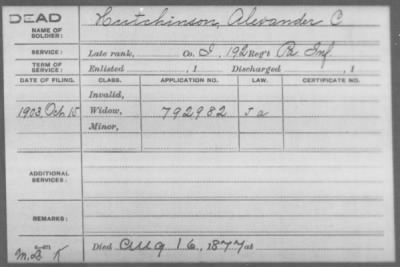 DEAD
NAME OF SOLDIER: Hutchinson, Alexander C
SERVICE: Late rank, Co. I, 192 Reg't Pa Inf
TERM OF SERVICE: Enlisted , 1 Discharged , 1
DATE OF FILING. CLASS. APPLICATION NO. LAW. CERTIFICATE NO.
Invalid,
1903, Oct. 15 Widow, 792982
Minor,
ADDITIONAL SERVICES:
REMARKS:
Died Aug 16, 1877 at
M.B. K